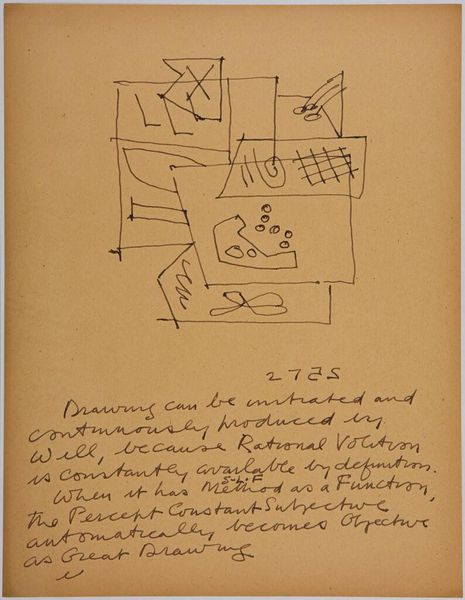 27 52
Drawing can be initiated and
continuously produced by
Will, because Rational Volition
is constantly available by definition.
S-L-F
When it has Method as a Function,
the Percept Constant Subjective
automatically becomes Objective
as Great Drawing